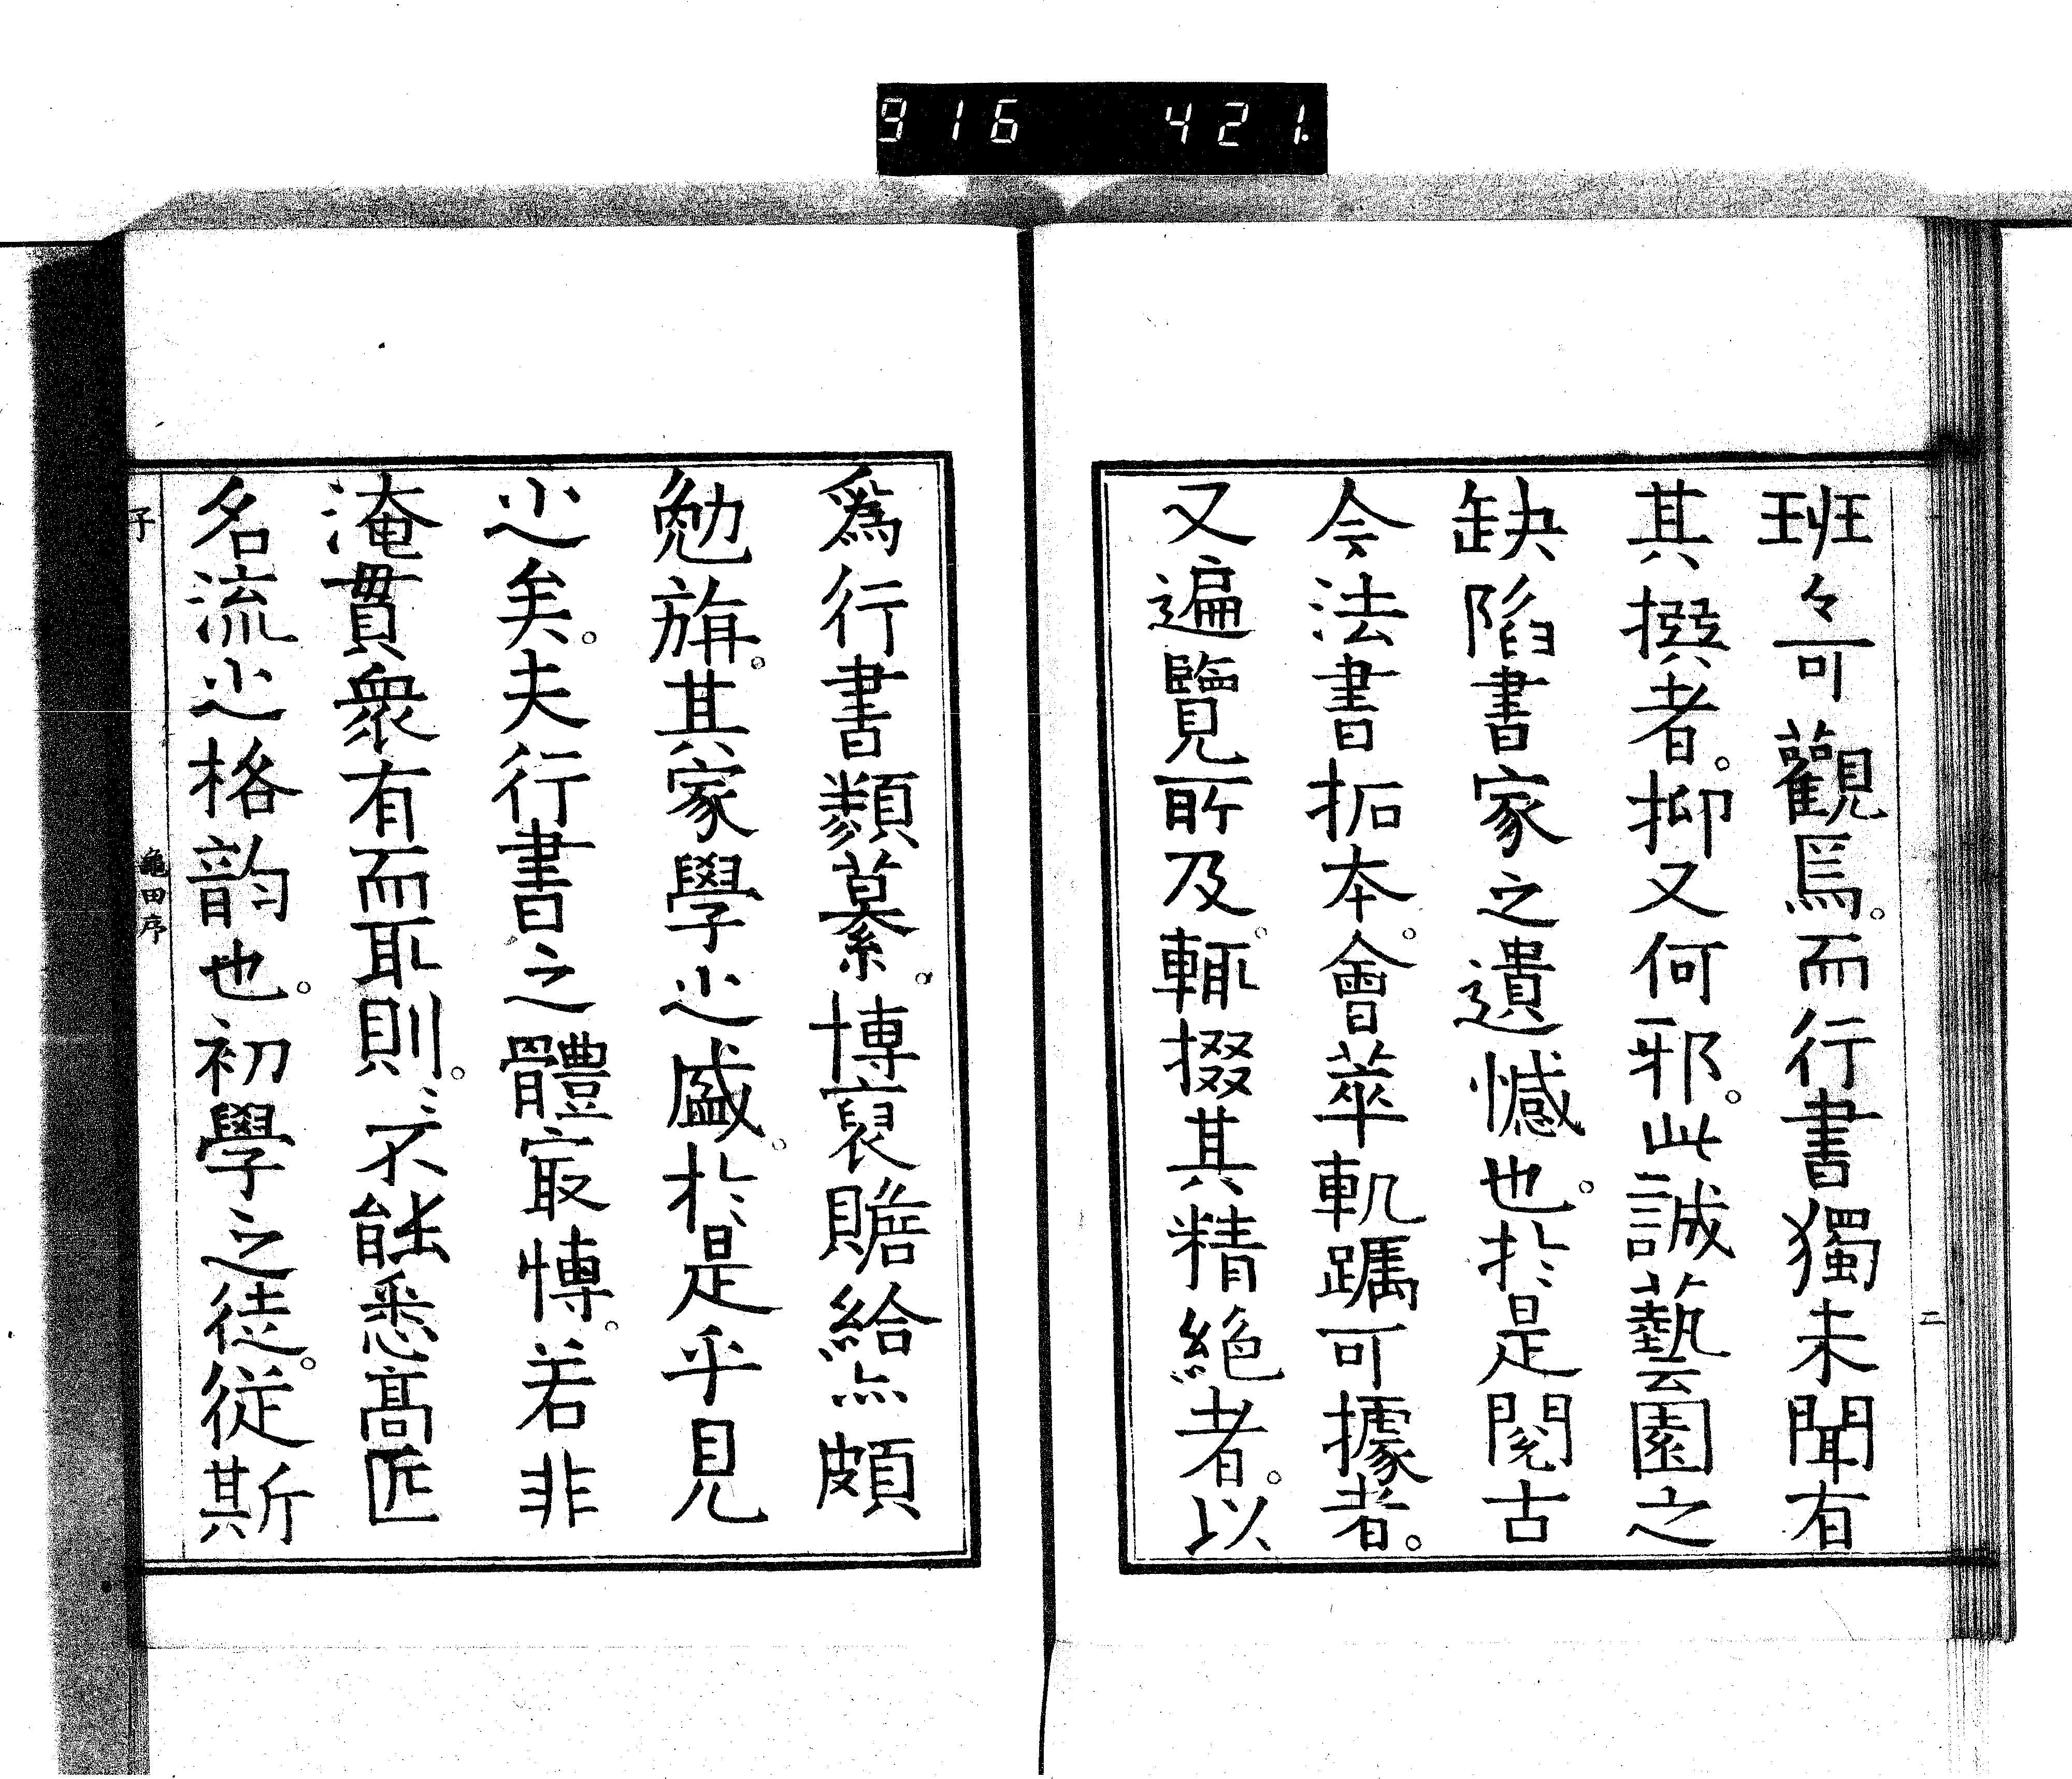 916 421.
班々可觀焉。而行書獨未聞有
其撰者。抑又何邪。此誠藝園之
缺陷書家之遺憾也。於是閱古
今法書拓本。會萃軌躅可據者。
又遍覽所及。輒掇其精絕者。以
二
爲行書類纂。博裒贍給亦頗
勉旃。其家學之盛。於是乎見
之矣。夫行書之體寂博。若非
淹貫衆有而取則。亦不能悉高匠
名流之格韵也。初學之徒。從斯
子
龜田序